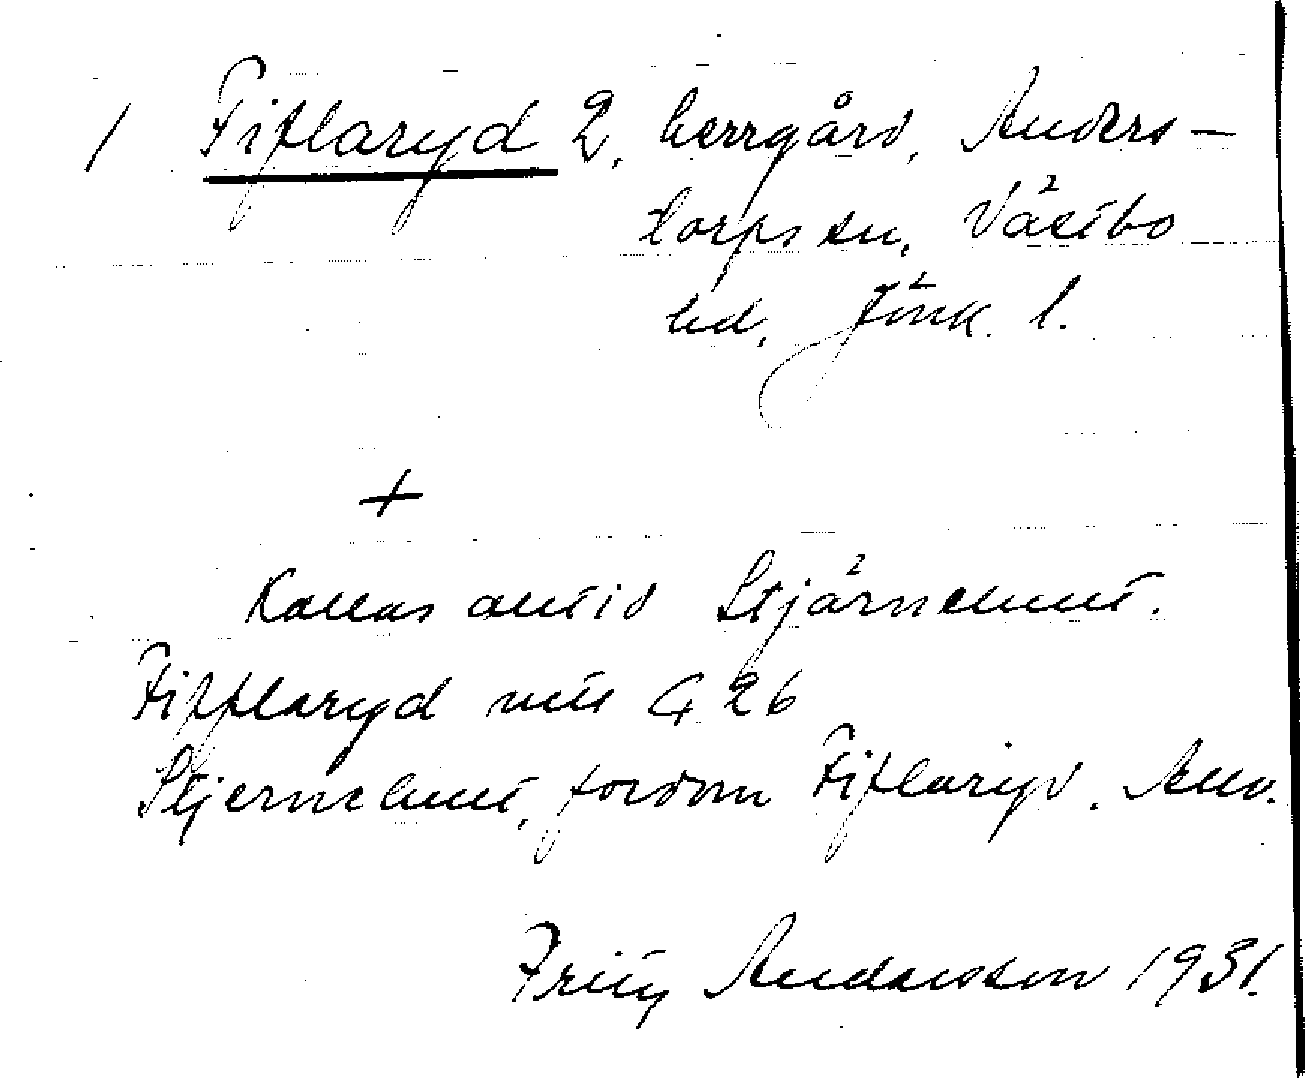 1 Fiflaryd 2, herrgård, Anders-
torps sn, Västbo
hd, Jönk. l.
+
Kallas alltid Stjärnehult.
Fifflaryd mtl G 26
Stjernehult, fordom Fiflaryd.
Fritz Andersson 1931.